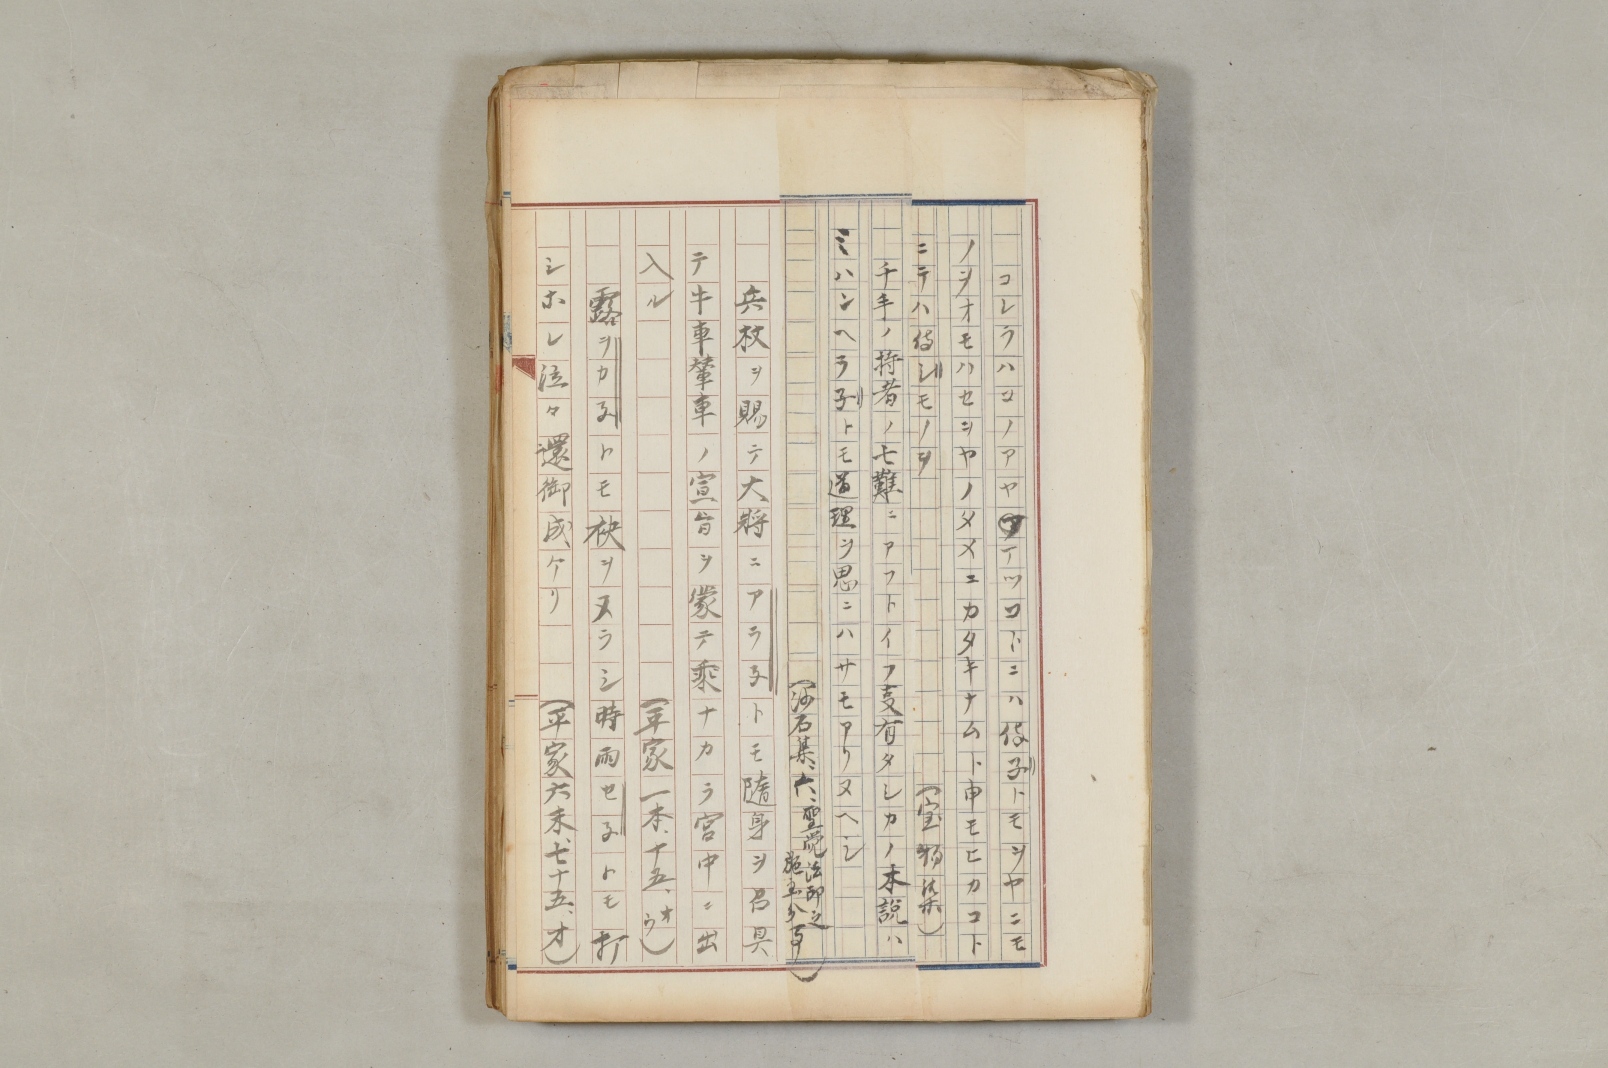 コレラハコノアヤマアツコトニハ侍子トモヲヤニモ
ノヲオモハセヲヤノタメニカタキナムト申モヒカコト
ニテハ侍シモノヲ(宝物集)
千手ノ持者ノ七難ニアフトイフ支有タシカノ本説ハ
ミハンヘラ子トモ道理ヲ思ニハサモアリヌヘシ
(沙石集、六、聖覚法印之施主分事)
兵杖ヲ賜テ大将ニアラ子トモ随身ヲ召具
テ牛車輦車ノ宣旨ヲ蒙テ乗ナカラ宮中ニ出
入ル(平家一本、十五、オウ)
露ヲカ子トモ袂ヲヌラシ時雨セ子トモ打
シホレ泣々還御成ケリ(平家六末、七十五、オ)